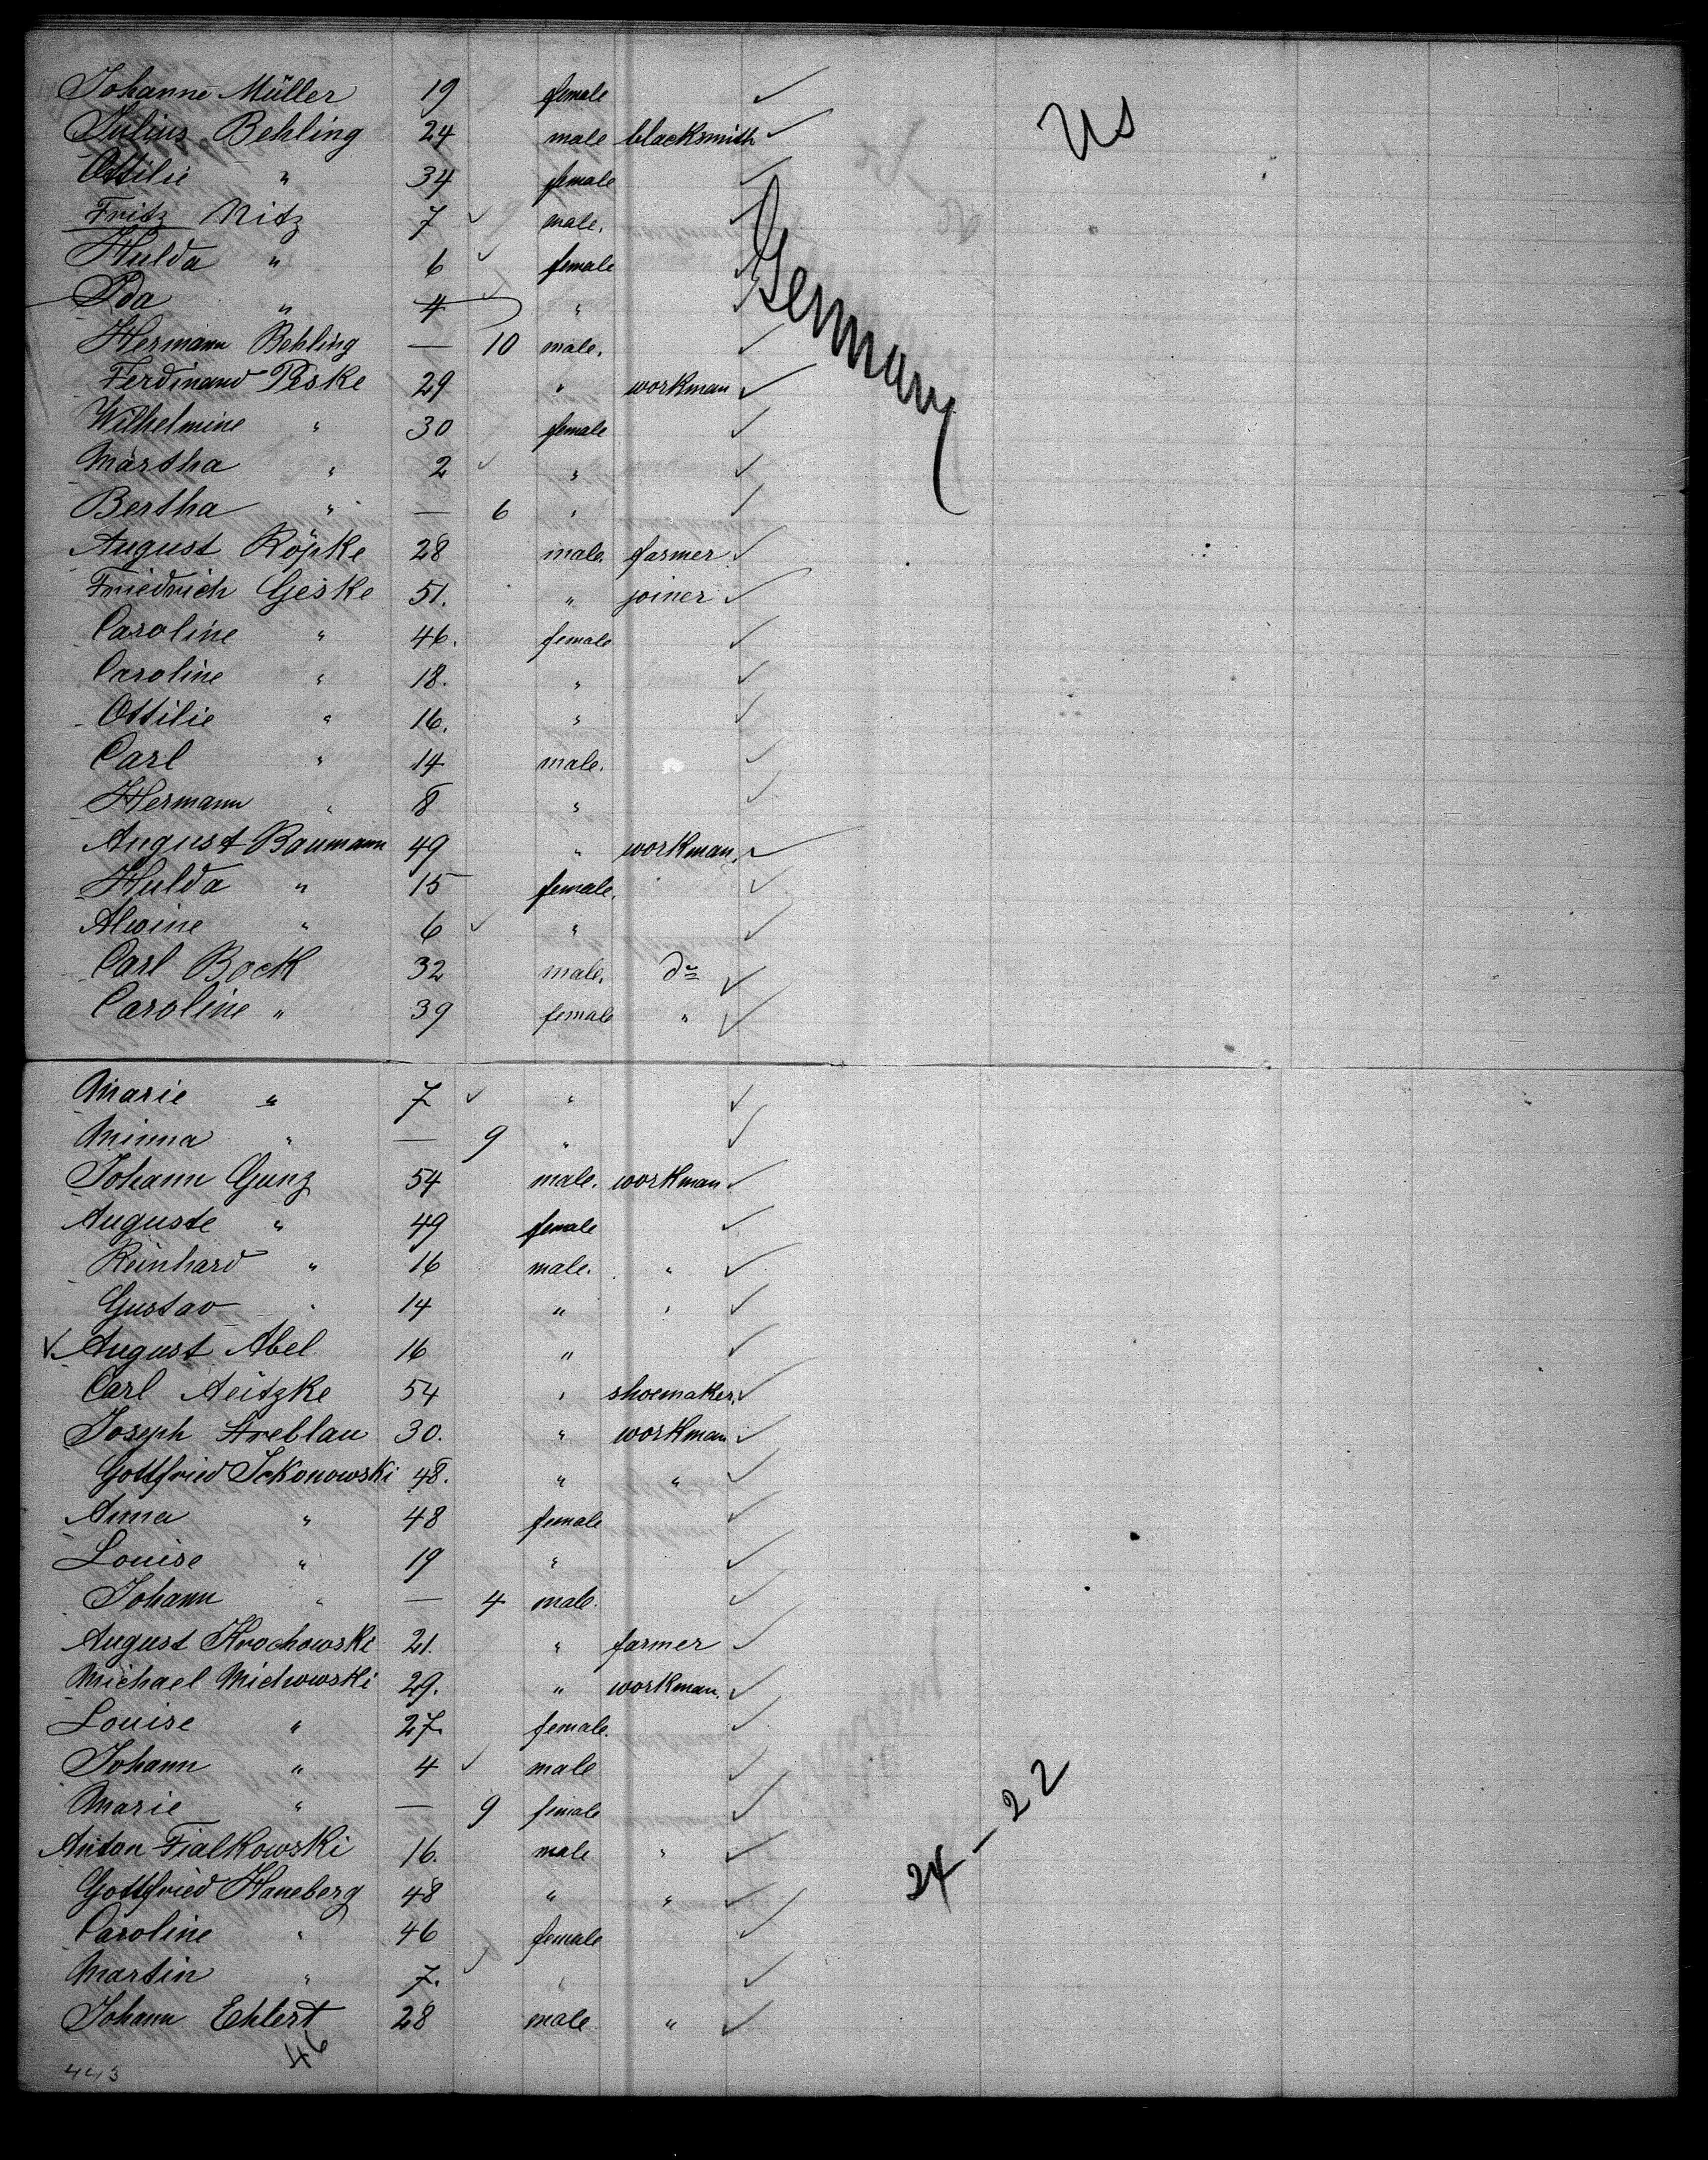 Johanne Müller 19 female
Julius Behling 24 male blacksmith
Ottilie " 34 female
Fritz Nitz 7 male.
Hulda " 6 female
Ida " 4 "
Hermann Behling — 10 male.
Ferdinand Peske 29 " workman
Wilhelmine " 30 female
Martha " 2 "
Bertha " — 6 "
August Röpke 28 male. farmer
Friedrich Geske 51. " joiner
Caroline " 46. female
Caroline " 18. "
Ottilie " 16. "
Carl " 14 male.
Hermann " 8 "
August Baumann 49 " workman.
Hulda " 15 female.
Alwine " 6 "
Carl Bock 32 male. do
Caroline " 39 female "
US
Germany
Marie " 7 "
Minna " — 9 "
Johann Gunz 54 male. workman
Auguste " 49 female
Reinhard " 16 male. "
Gustav " 14 " "
August Abel 16 "
Carl Aeitzke 54 " shoemaker.
Joseph Streblau 30. " workman
Gottfried Ickonowski 48. " "
Anna " 48 female
Louise " 19 "
Johann " — 4 male.
August Krochowski 21. " farmer
Michael Michowski 29. " workman.
Louise " 27. female.
Johann " 4 male
Marie " — 9 female
Anton Fialkowski 16. male "
Gottfried Haneberg 48 " "
Caroline " 46 female
Martin " 7. "
Johann Ehlert 28 male "
24-22
46
443